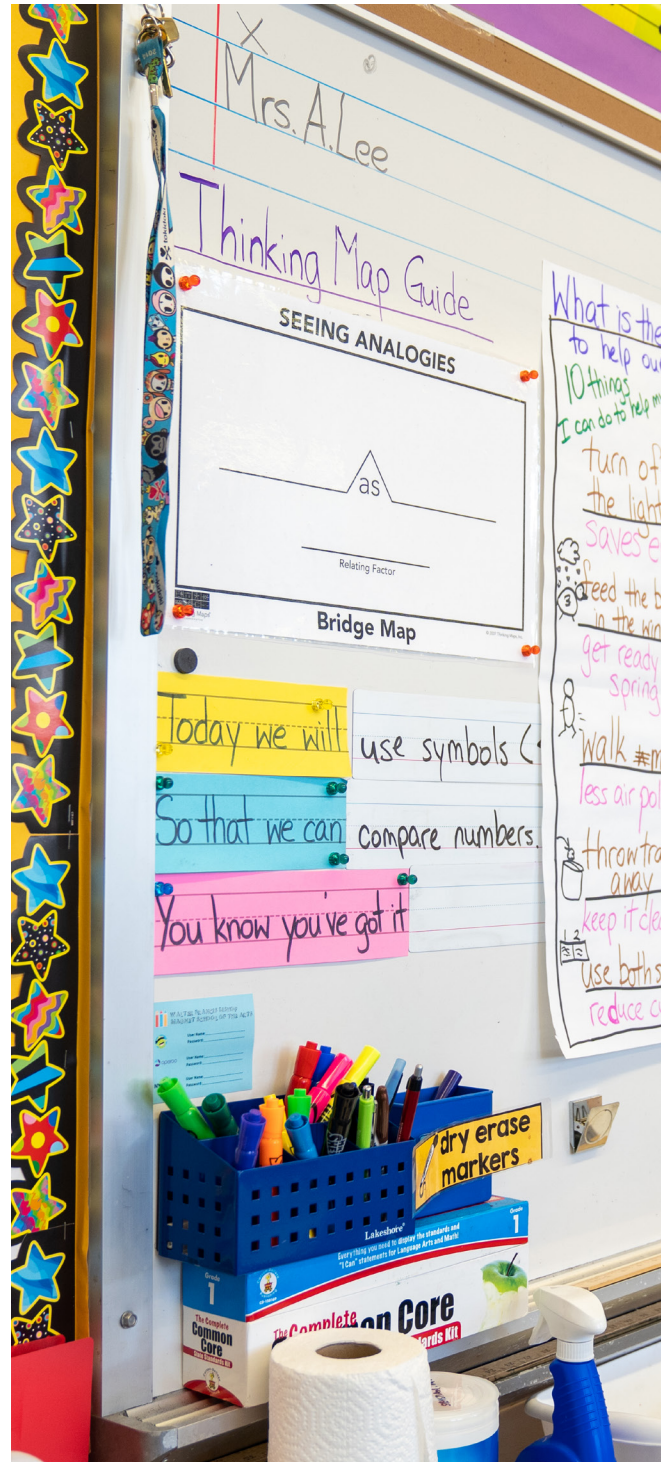 X
Mrs. A. Lee
Thinking Map Guide
SEEING ANALOGIES
as
Relating Factor
Maps
Bridge Map
Today we will
use symbols (
So that we can
compare numbers.
You know you've got it
What is the
to help ou
10 things
I can do to help m
turn of
the light
saves e
feed the b
in the win
get ready
spring
walk #m
less air pol
throw tra
away
keep it clea
use both s
reduce c
User Name
Password
User Name
Password
User Name
dry erase
markers
Lakeshore
Everything you need to display the standards and
"I Can" statements for Language Arts and Math!
Grade
1
Grade
1
The Complete
Common
Core
State Standards Kit
The Complete
on Core
dards Kit